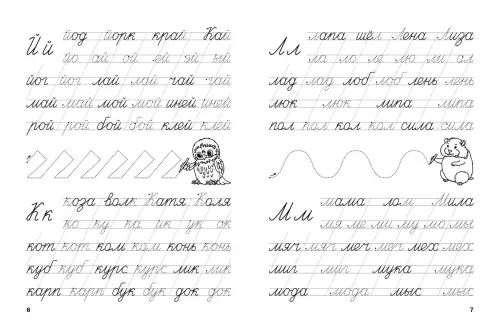 Й й йод йорк край Кай
йо ай ой ей эй ый
йог йог лай лай чай чай
май май мой мой иней иней
рой рой бой бой клей клей
К к коза волк Катя Коля
ко ку ка ик ук ок
кот кот ком ком конь конь
куб куб курс курс лик лик
карп карп бук бук док док
6
Л л лапа шёл Лена Лиза
ла ло ле лю ли ол
лад лад лоб лоб лень лень
люк люк липа липа
пол пол кол кол сила сила
М м мама лом Мила
мя ме ми му мо мы
мяч мяч меч меч мех мех
миг миг мука мука
мода мода мыс мыс
7